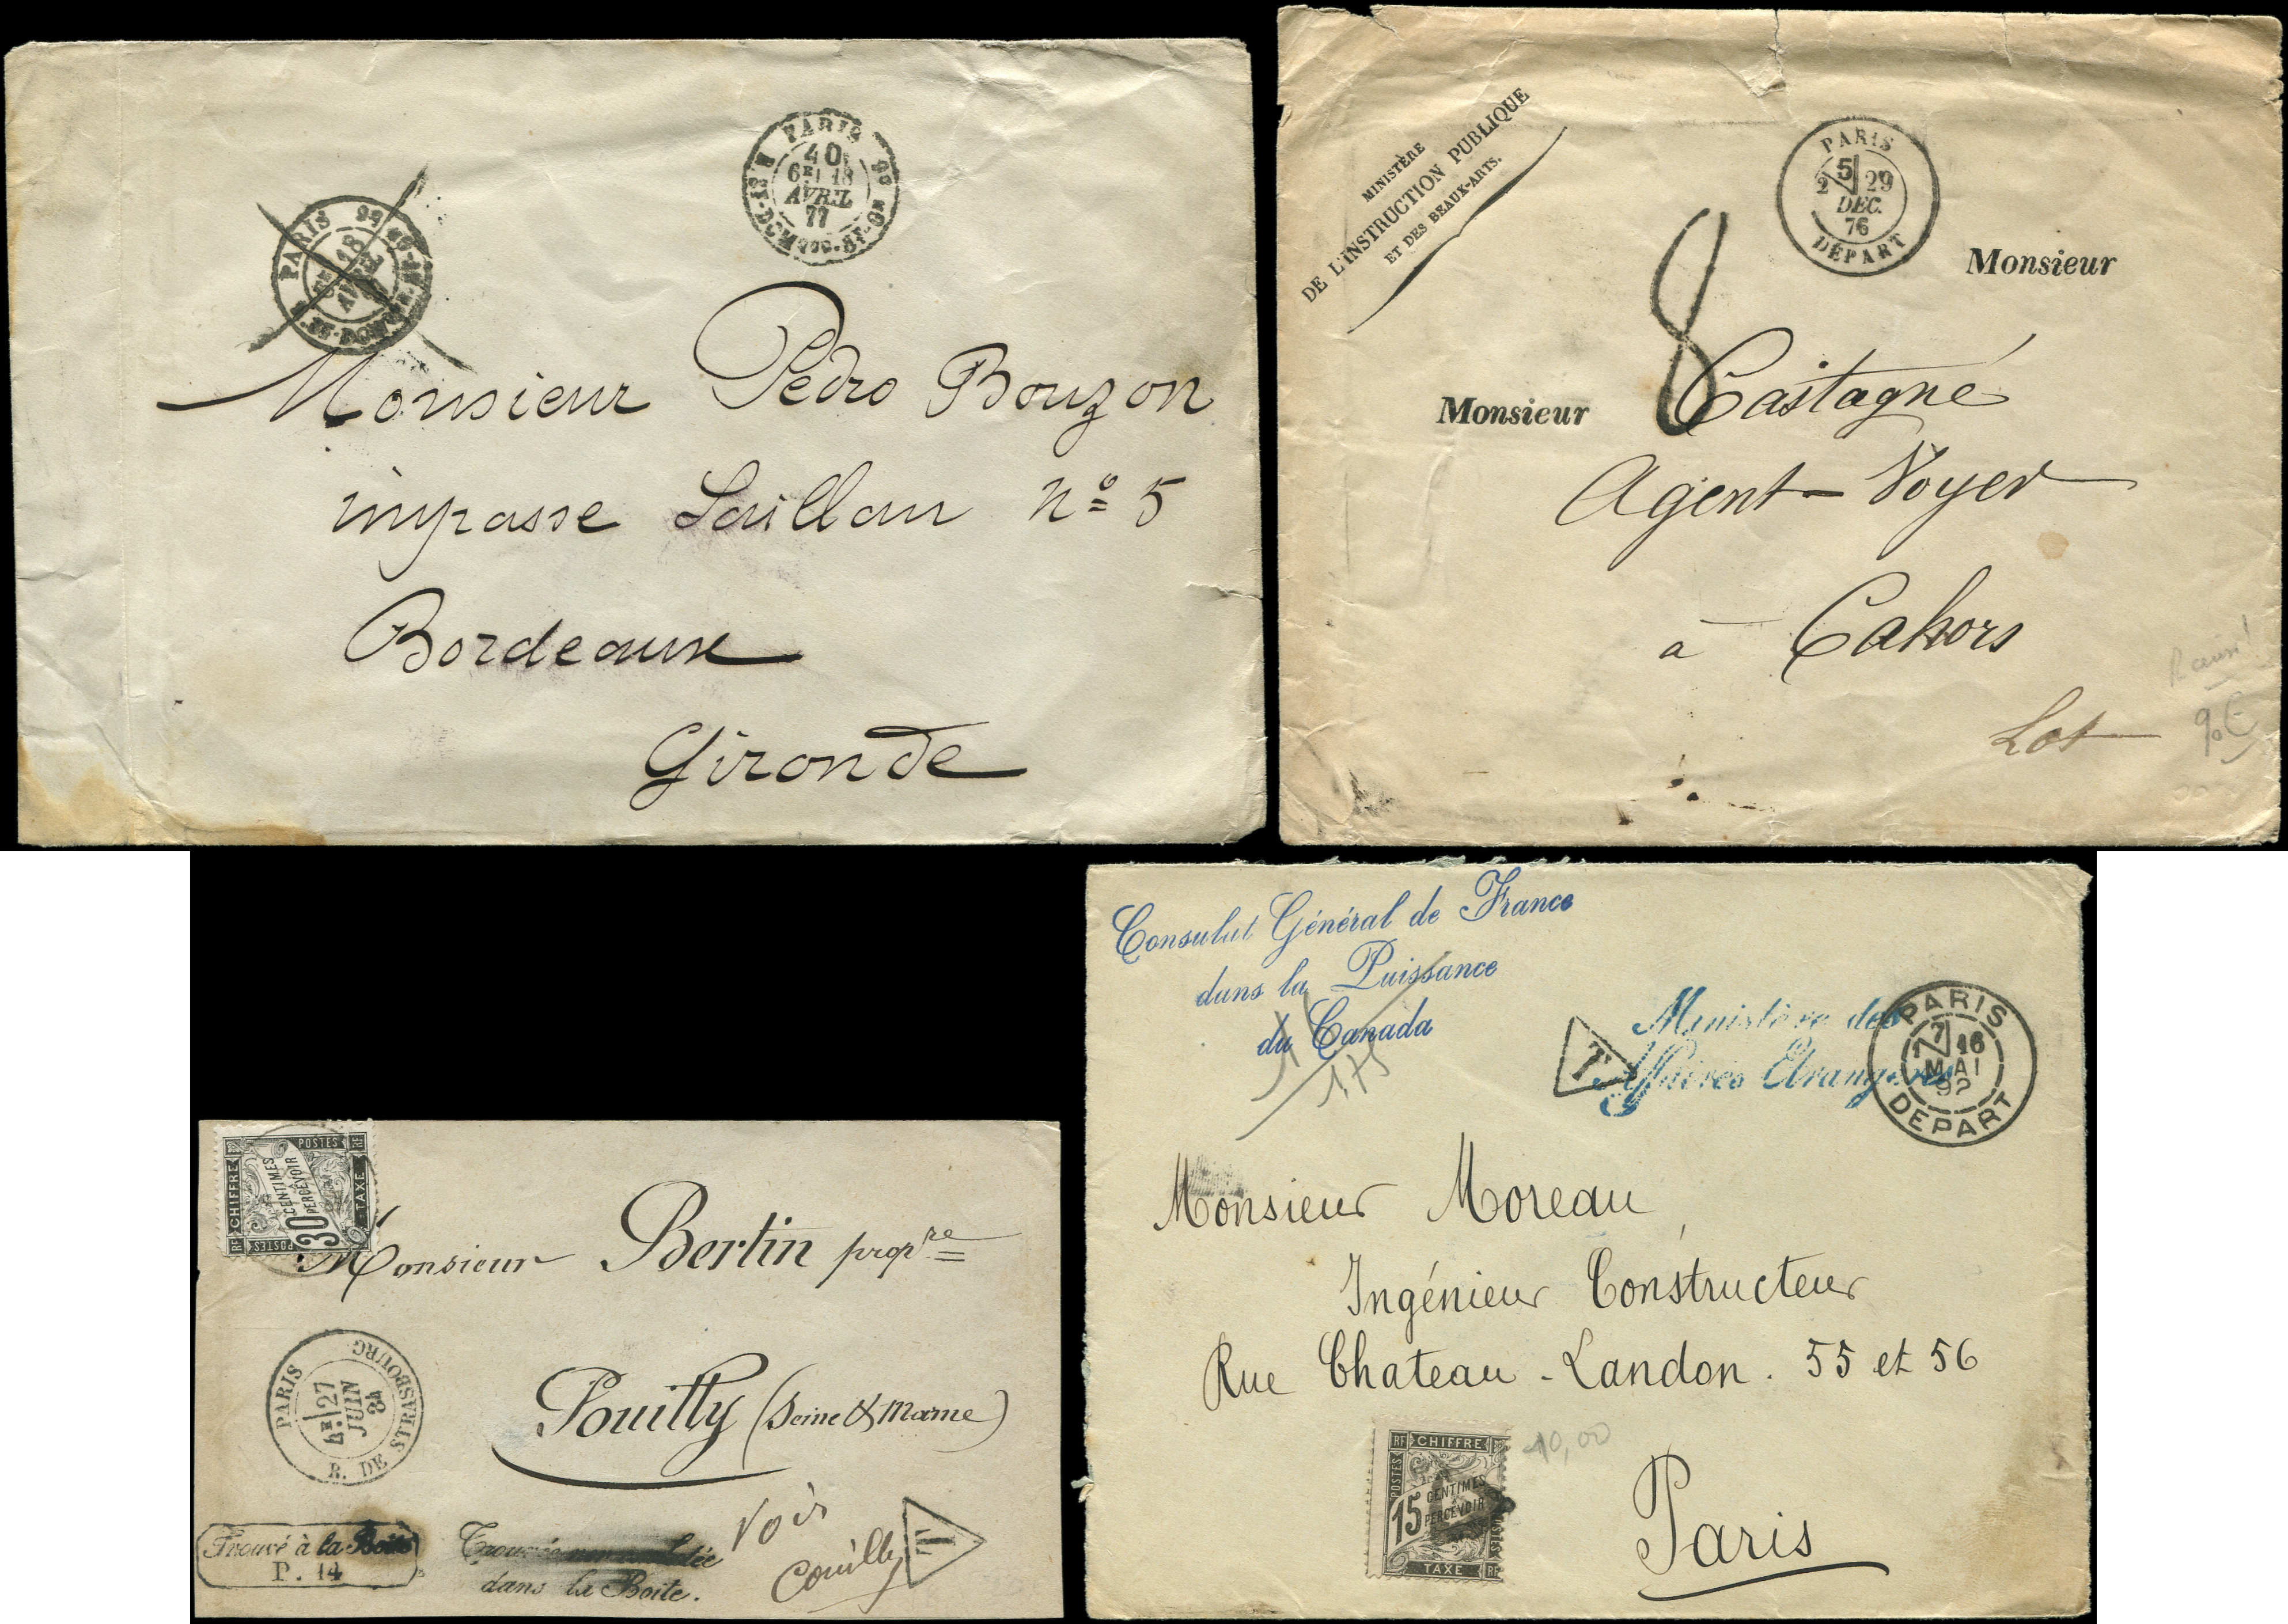 PARIS
40
6E/ 18
AVRIL
77
R. ST-DOMque-St-Gn 56
PARIS
18
AVRIL
Monsieur Pedro Bouzon
impasse Laillan n° 5
Bordeaux
Gironde
MINISTÈRE
DE L'INSTRUCTION PUBLIQUE
ET DES BEAUX-ARTS.
PARIS
5
2 29
DÉC.
76
DÉPART
8
Monsieur
Monsieur Castagné
Agent-Voyer
à Cahors
Lot
POSTES RF
CHIFFRE
30 CENTIMES
À
PERCEVOIR
TAXE
RF POSTES
Monsieur Bertin propre
Pouilly (Seine & Marne)
PARIS
4E 27
JUIN
84
R. DE STRASBOURG
Trouvé à la Boite
P. 14
Trouvée non
dans la Boite.
Voir
Couilly
T
Consulat Général de France
dans la Puissance
du Canada
175
T
Ministère des
Affaires Etrangères
PARIS
7
1 16
MAI
92
DEPART
Monsieur Moreau
Ingénieur Constructeur
Rue Chateau-Landon. 55 et 56
Paris
RF CHIFFRE
POSTES
15 CENTIMES
À
PERCEVOIR
POSTES
TAXE RF
10,00